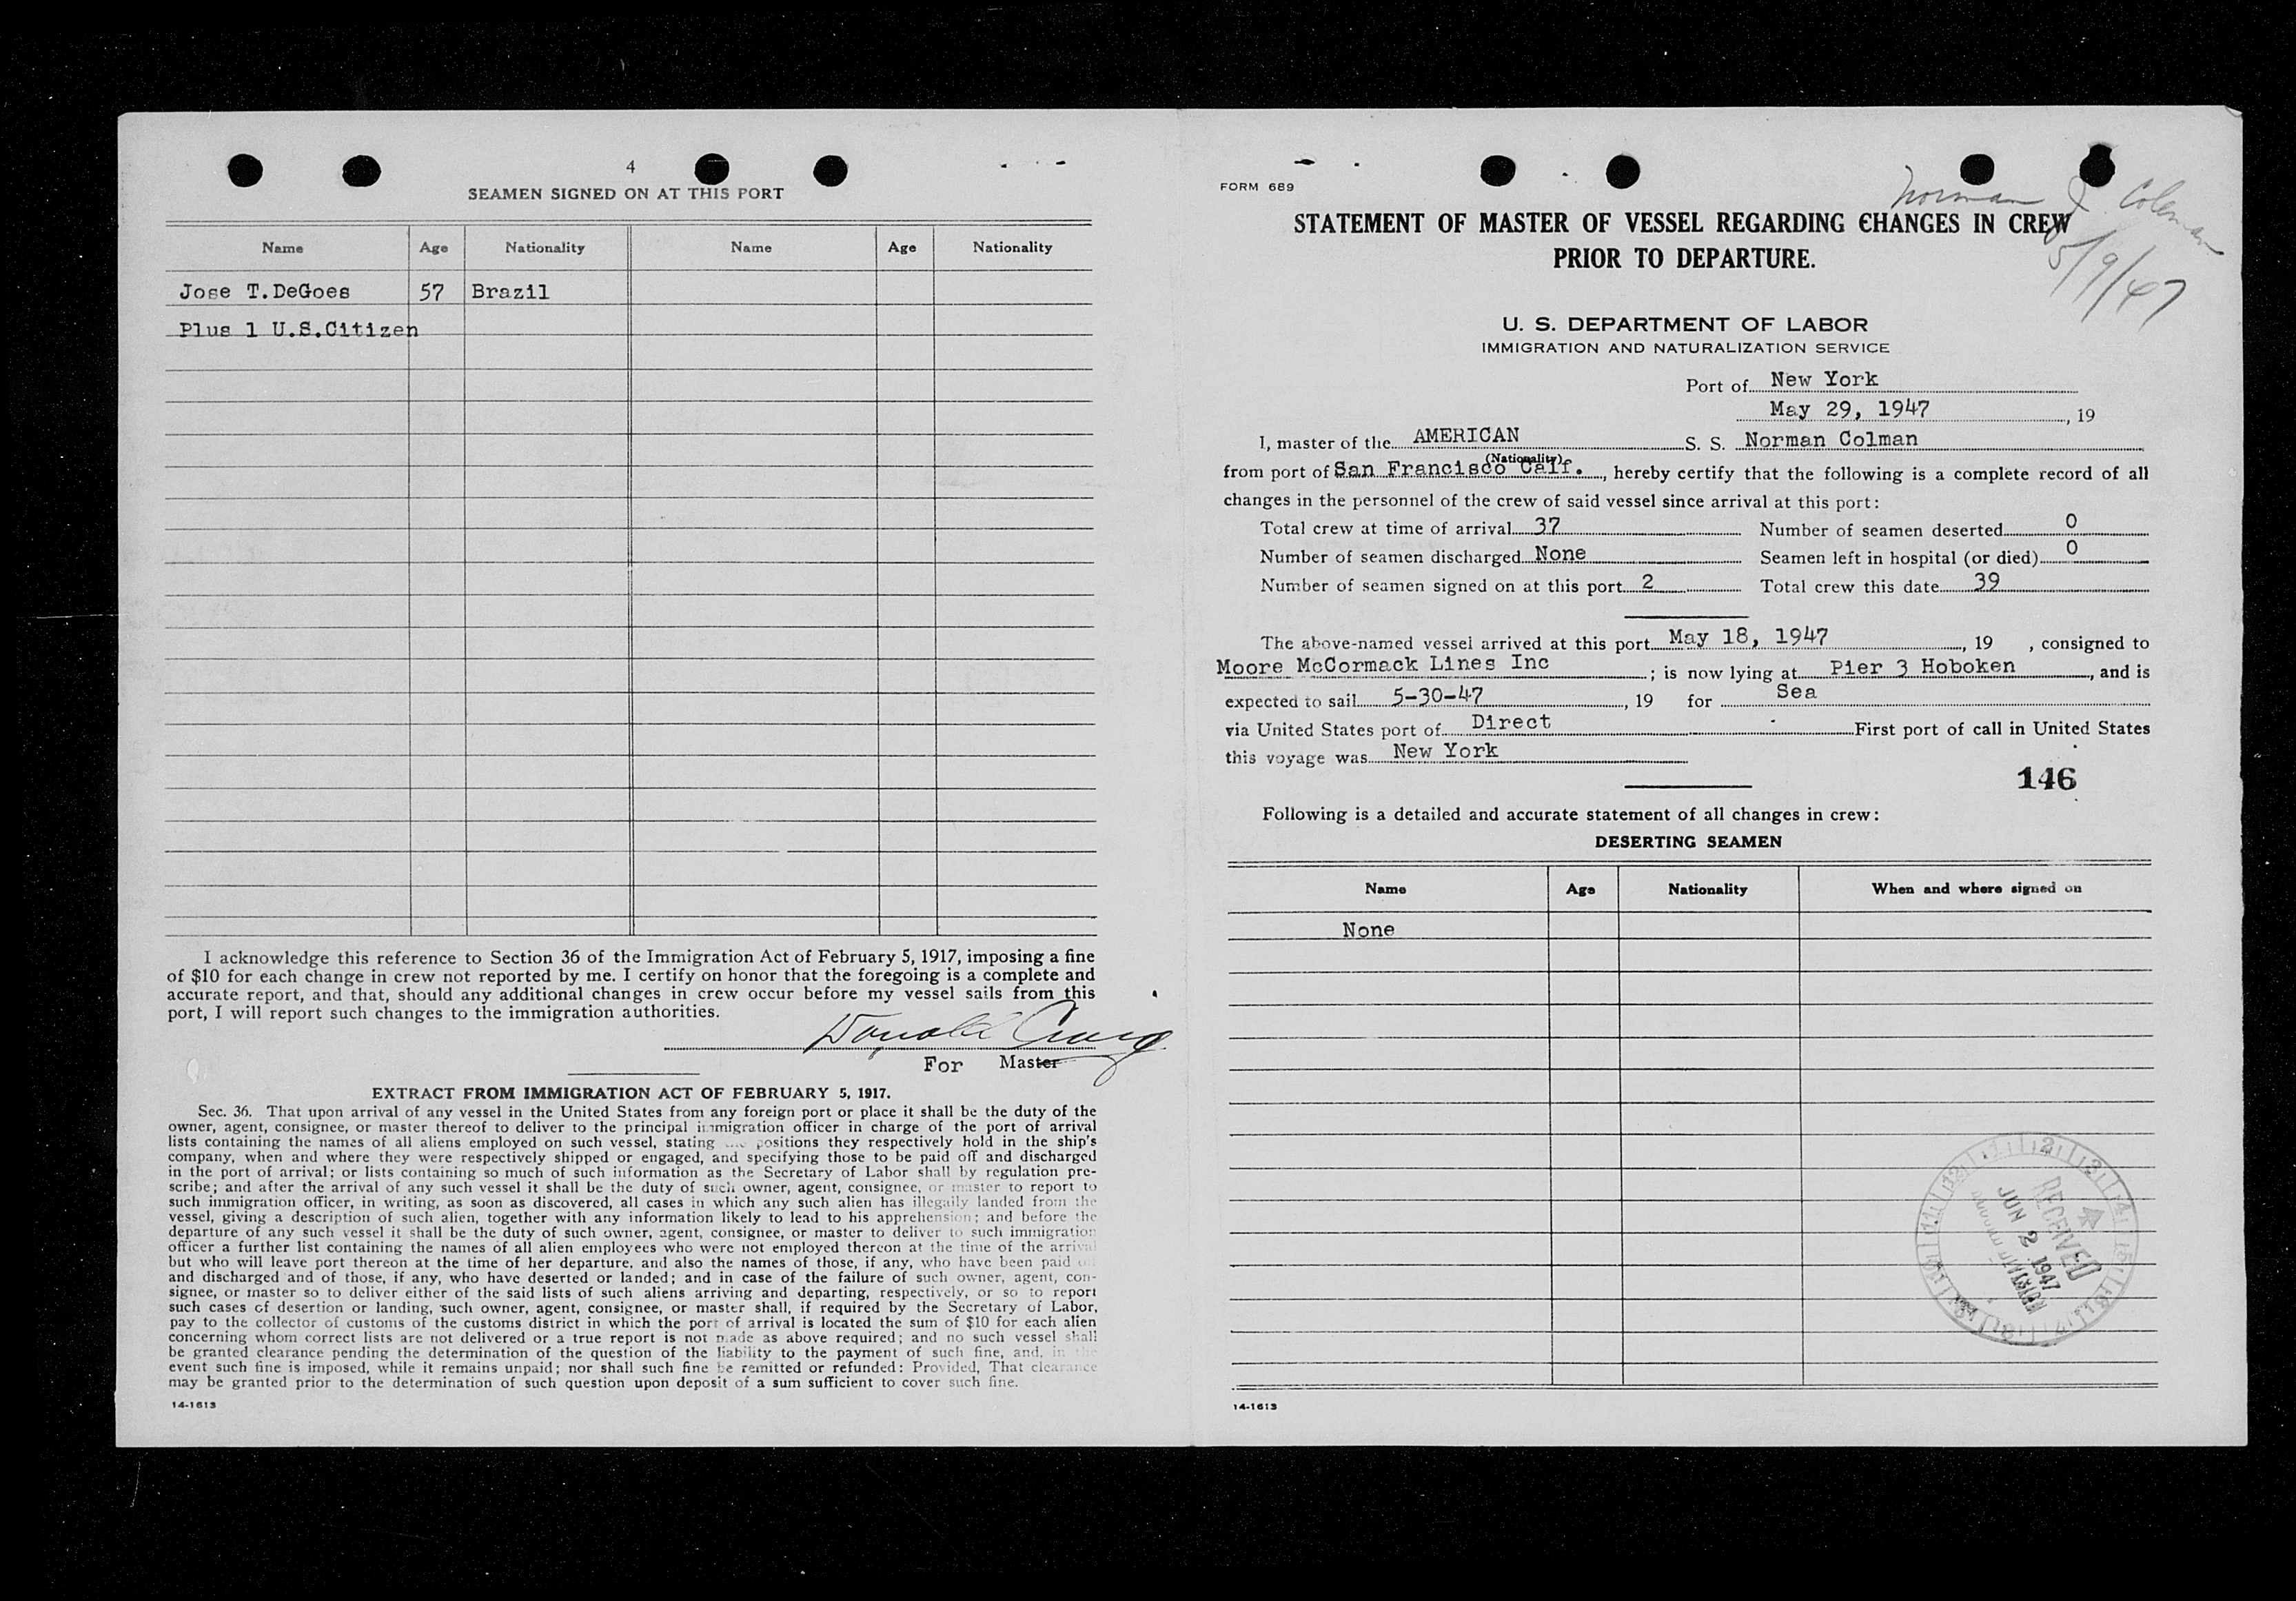 4
SEAMEN SIGNED ON AT THIS PORT
Name Age Nationality Name Age Nationality
Jose T.DeGoes 57 Brazil
Plus 1 U.S.Citizen
I acknowledge this reference to Section 36 of the Immigration Act of February 5, 1917, imposing a fine
of $10 for each change in crew not reported by me. I certify on honor that the foregoing is a complete and
accurate report, and that, should any additional changes in crew occur before my vessel sails from this
port, I will report such changes to the immigration authorities.
Donald Craig
For Master
EXTRACT FROM IMMIGRATION ACT OF FEBRUARY 5, 1917.
Sec. 36. That upon arrival of any vessel in the United States from any foreign port or place it shall be the duty of the
owner, agent, consignee, or master thereof to deliver to the principal immigration officer in charge of the port of arrival
lists containing the names of all aliens employed on such vessel, stating the positions they respectively hold in the ship's
company, when and where they were respectively shipped or engaged, and specifying those to be paid off and discharged
in the port of arrival; or lists containing so much of such information as the Secretary of Labor shall by regulation pre-
scribe; and after the arrival of any such vessel it shall be the duty of such owner, agent, consignee, or master to report to
such immigration officer, in writing, as soon as discovered, all cases in which any such alien has illegally landed from the
vessel, giving a description of such alien, together with any information likely to lead to his apprehension; and before the
departure of any such vessel it shall be the duty of such owner, agent, consignee, or master to deliver to such immigration
officer a further list containing the names of all alien employees who were not employed thereon at the time of the arrival
but who will leave port thereon at the time of her departure, and also the names of those, if any, who have been paid off
and discharged and of those, if any, who have deserted or landed; and in case of the failure of such owner, agent, con-
signee, or master so to deliver either of the said lists of such aliens arriving and departing, respectively, or so to report
such cases of desertion or landing, such owner, agent, consignee, or master shall, if required by the Secretary of Labor,
pay to the collector of customs of the customs district in which the port of arrival is located the sum of $10 for each alien
concerning whom correct lists are not delivered or a true report is not made as above required; and no such vessel shall
be granted clearance pending the determination of the question of the liability to the payment of such fine, and, in the
event such fine is imposed, while it remains unpaid; nor shall such fine be remitted or refunded: Provided, That clearance
may be granted prior to the determination of such question upon deposit of a sum sufficient to cover such fine.
14-1613
FORM 689
Norman J. Coleman
5/9/47
STATEMENT OF MASTER OF VESSEL REGARDING CHANGES IN CREW
PRIOR TO DEPARTURE.
U. S. DEPARTMENT OF LABOR
IMMIGRATION AND NATURALIZATION SERVICE
Port of New York
May 29, 1947, 19
I, master of the AMERICAN S. S. Norman Colman
(Nationality)
from port of San Francisco Calf., hereby certify that the following is a complete record of all
changes in the personnel of the crew of said vessel since arrival at this port:
Total crew at time of arrival 37 Number of seamen deserted 0
Number of seamen discharged None Seamen left in hospital (or died) 0
Number of seamen signed on at this port 2 Total crew this date 39
The above-named vessel arrived at this port May 18, 1947, 19 , consigned to
Moore McCormack Lines Inc ; is now lying at Pier 3 Hoboken, and is
expected to sail 5-30-47, 19 for Sea
via United States port of Direct First port of call in United States
this voyage was New York
146
Following is a detailed and accurate statement of all changes in crew:
DESERTING SEAMEN
Name Age Nationality When and where signed on
None
RECEIVED
JUN 2 1947
DIVISION
14-1613